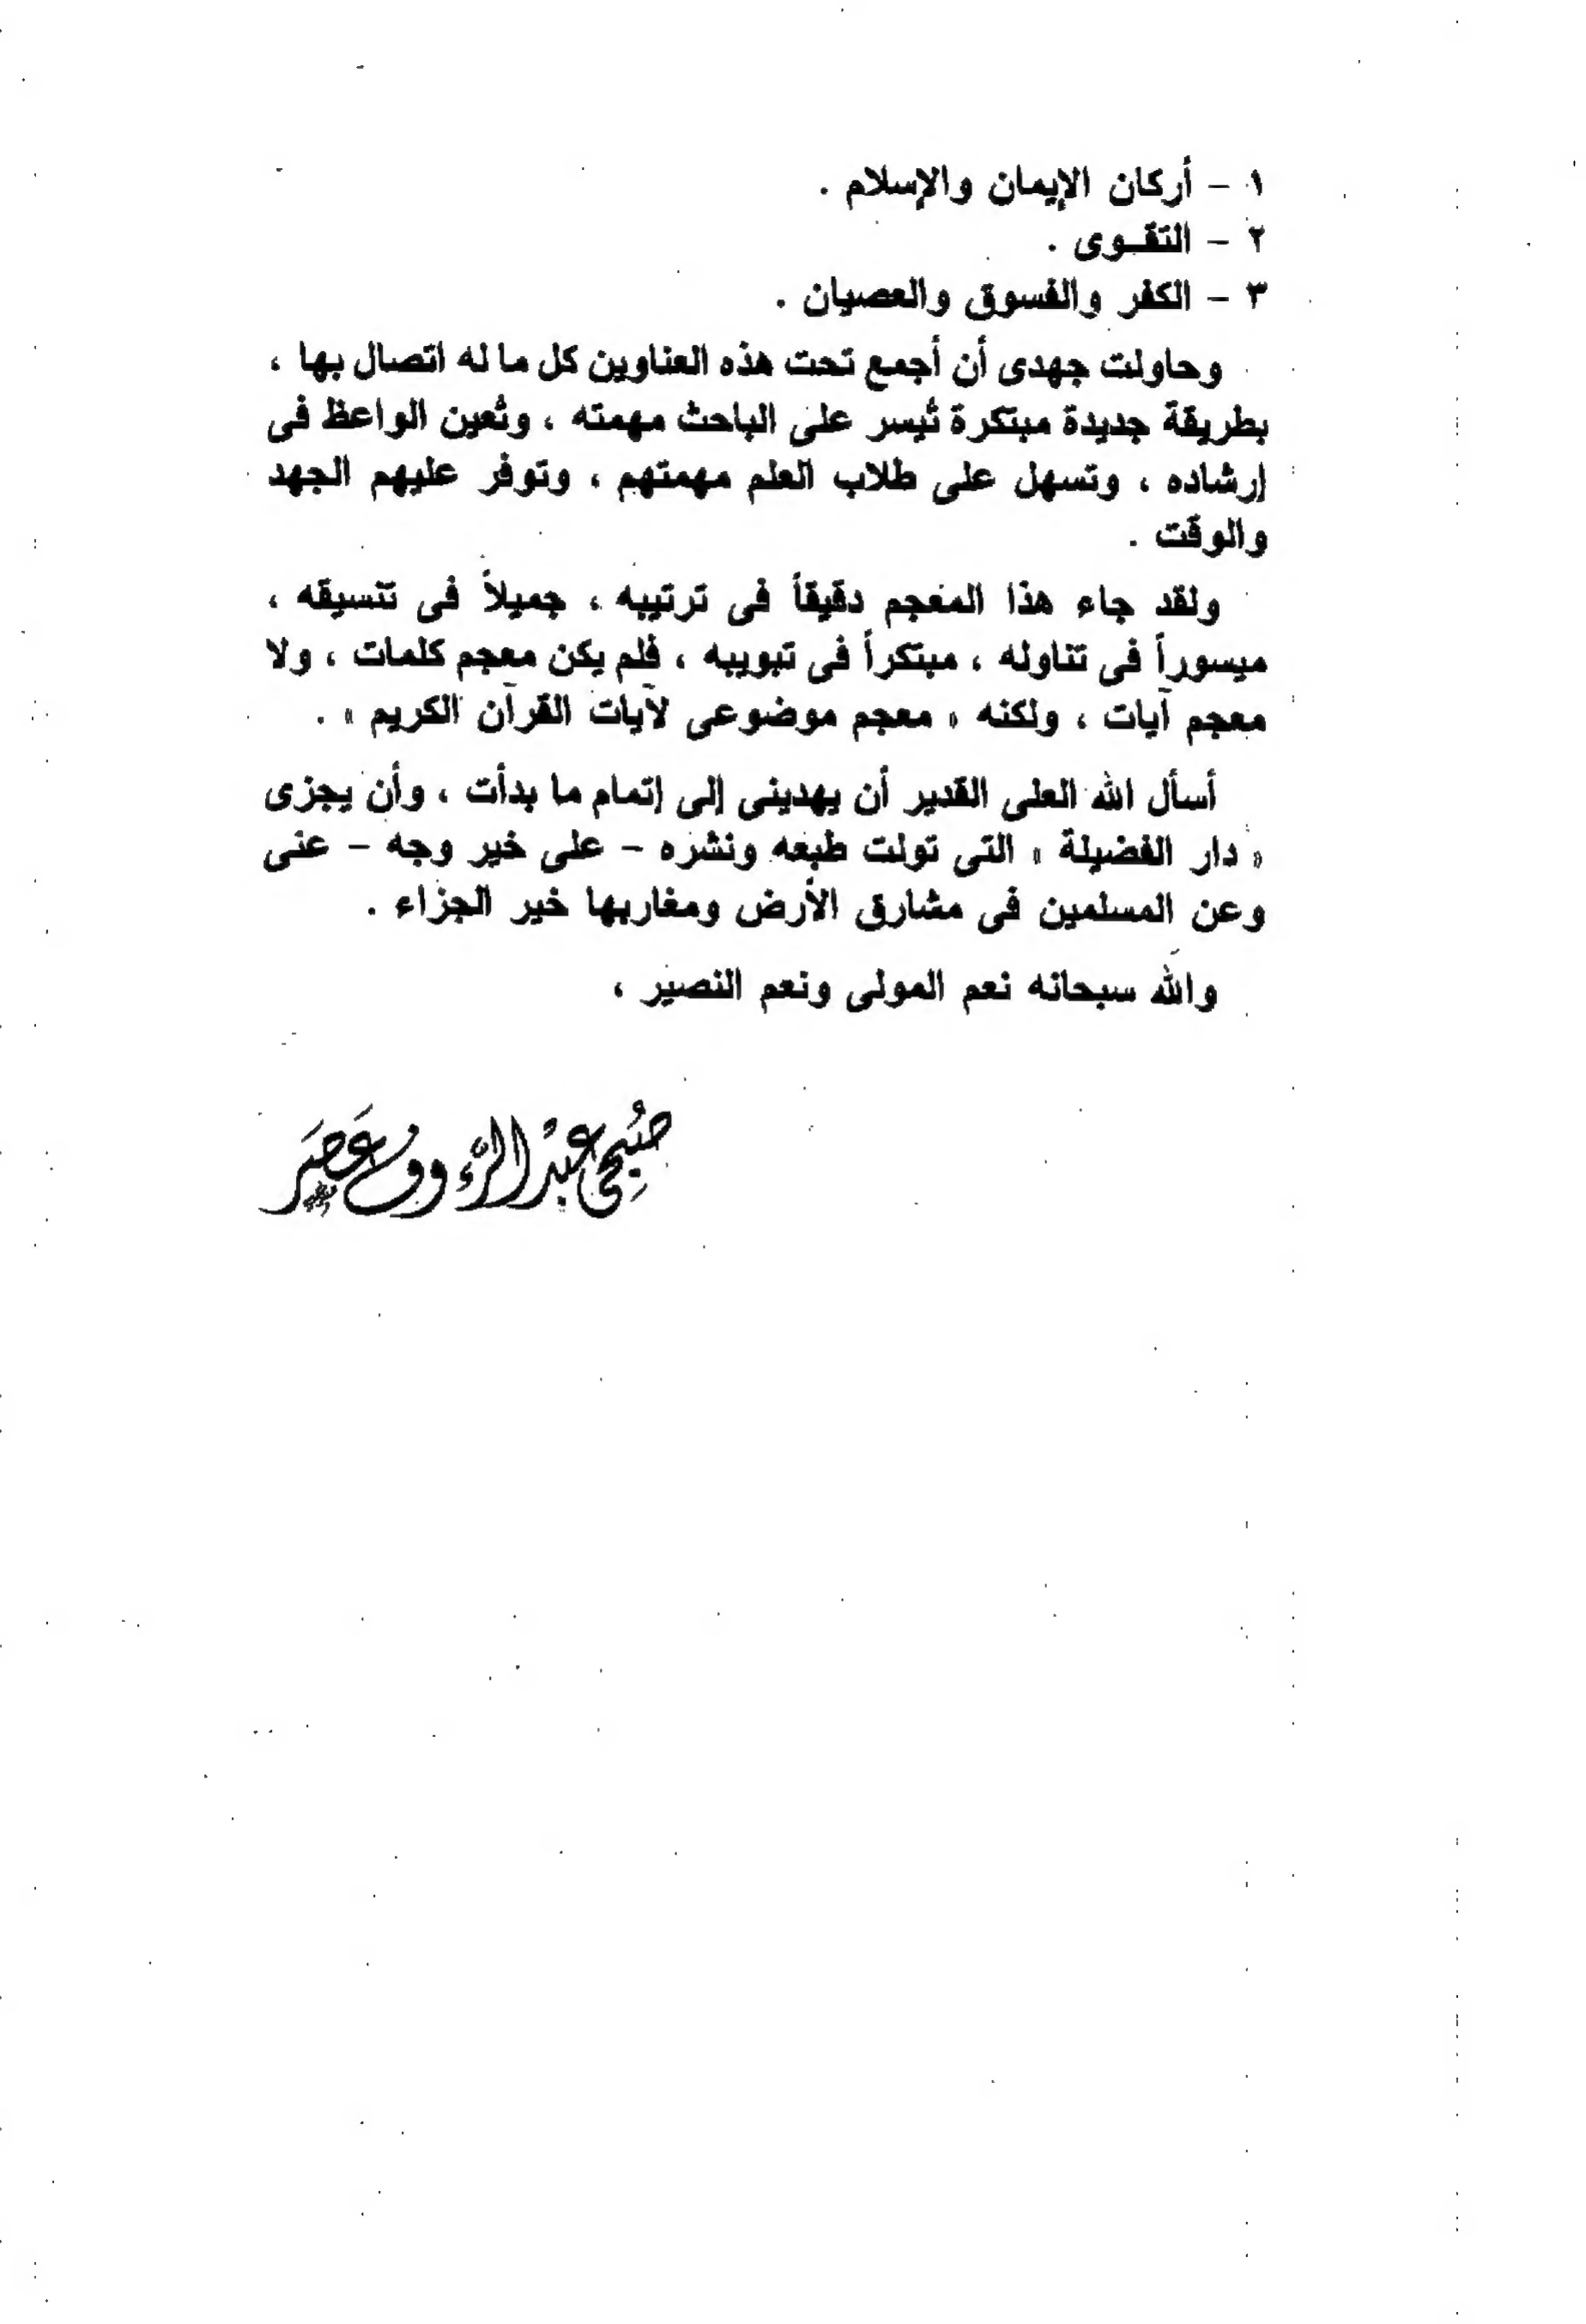 ١ - أركان الإيمان والإسلام .
٢ - التقـوى .
٣ - الكفر والفسوق والعصيان .
وحاولت جهدى أن أجمع تحت هذه العناوين كل ما له اتصال بها ،
بطريقة جديدة مبتكرة تُيسر على الباحث مهمته ، وتُعين الواعظ فى
إرشاده ، وتسهل على طلاب العلم مهمتهم ، وتوفر عليهم الجهد
والوقت .
ولقد جاء هذا المعجم دقيقاً فى ترتيبه ، جميلاً فى تنسيقه ،
ميسوراً فى تناوله ، مبتكراً فى تبويبه ، فلم يكن معجم كلمات ، ولا
معجم آيات ، ولكنه « معجم موضوعى لآيات القرآن الكريم » .
أسأل الله العلى القدير أن يهدينى إلى إتمام ما بدأت ، وأن يجزى
« دار الفضيلة » التى تولت طبعه ونشره - على خير وجه - عنى
وعن المسلمين فى مشارق الأرض ومغاربها خير الجزاء .
والله سبحانه نعم المولى ونعم النصير ،
صُبْحِى عَبْدُ الرَّءُوف عَصَر